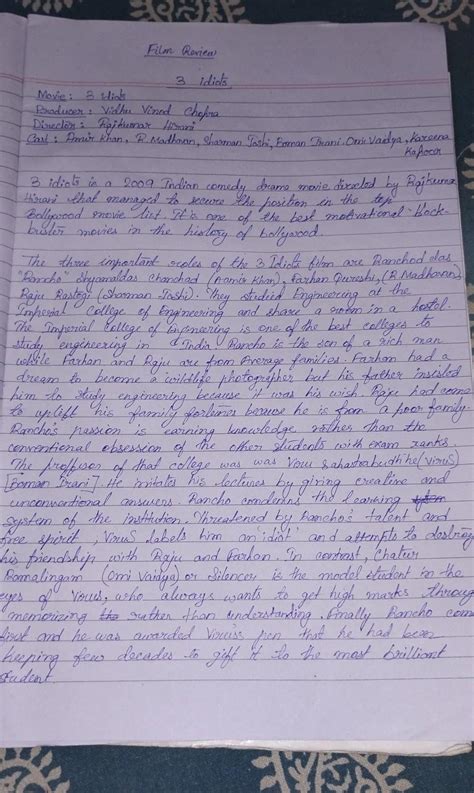 Film Review
3 idiots
Movie: 3 idiots
Producer: Vidhu Vinod Chopra
Director: Rajkumar Hirani
Cast: Amir Khan, R. Madhavan, Sharman Joshi, Boman Irani, Omi Vaidya, Kareena
Kapoor
3 idiots is a 2009 Indian comedy drama movie directed by Rajkumar
Hirani that managed to secure the position in the top
Bollywood movie list. It's one of the best motivational block-
buster movies in the history of bollywood.
The three important roles of the 3 Idiots film are Ranchoddas
"Rancho" Shyamaldas Chanchad (Aamir Khan), Farhan Qureshi, (R. Madhavan),
Raju Rastogi (Sharman Joshi). They studied Engineering at the
Imperial College of Engineering and share a room in a hostel.
The Imperial College of Engineering is one of the best colleges to
study engineering in India. Rancho is the son of a rich man
while Farhan and Raju are from Average families. Farhan had a
dream to become a wildlife photographer but his father insisted
him to study engineering because it was his wish. Raju had come
to uplift his family fortunes because he is from a poor family.
Rancho's passion is earning knowledge rather than the
conventional obsession of the other students with exam ranks.
The professor of that college was was Viru Sahastrabudhhe (Virus)
[Boman Irani]. He irritates his lectures by giving creative and
unconventional answers. Rancho condemns the learning
system of the institution. Threatened by Rancho's talent and
free spirit, Virus labels him an 'idiot' and attempts to destroy
his friendship with Raju and Farhan. In contrast, Chatur
Ramalingam (Omi Vaidya) or Silencer is the model student in the
eyes of Virus, who always wants to get high marks through
memorizing the rather than understanding. Finally Rancho com
first and he was awarded Virus's pen that he had been
keeping few decades to gift it to the most brilliant
student.